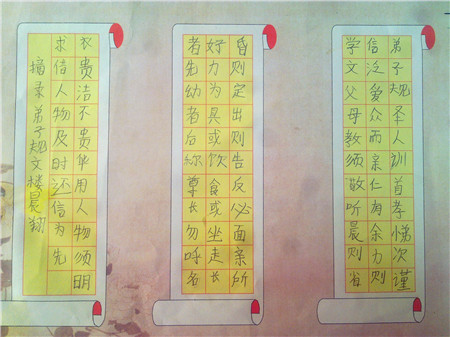 弟子规圣人训首孝悌次谨
信泛爱众而亲仁有余力则
学文父母教须敬听晨则省
昏则定出则告反必面亲所
好力为具或饮食或坐走长
者先幼者后称尊长勿呼名
衣贵洁不贵华用人物须明
求借人物及时还信为先
摘录弟子规文楼晨翔